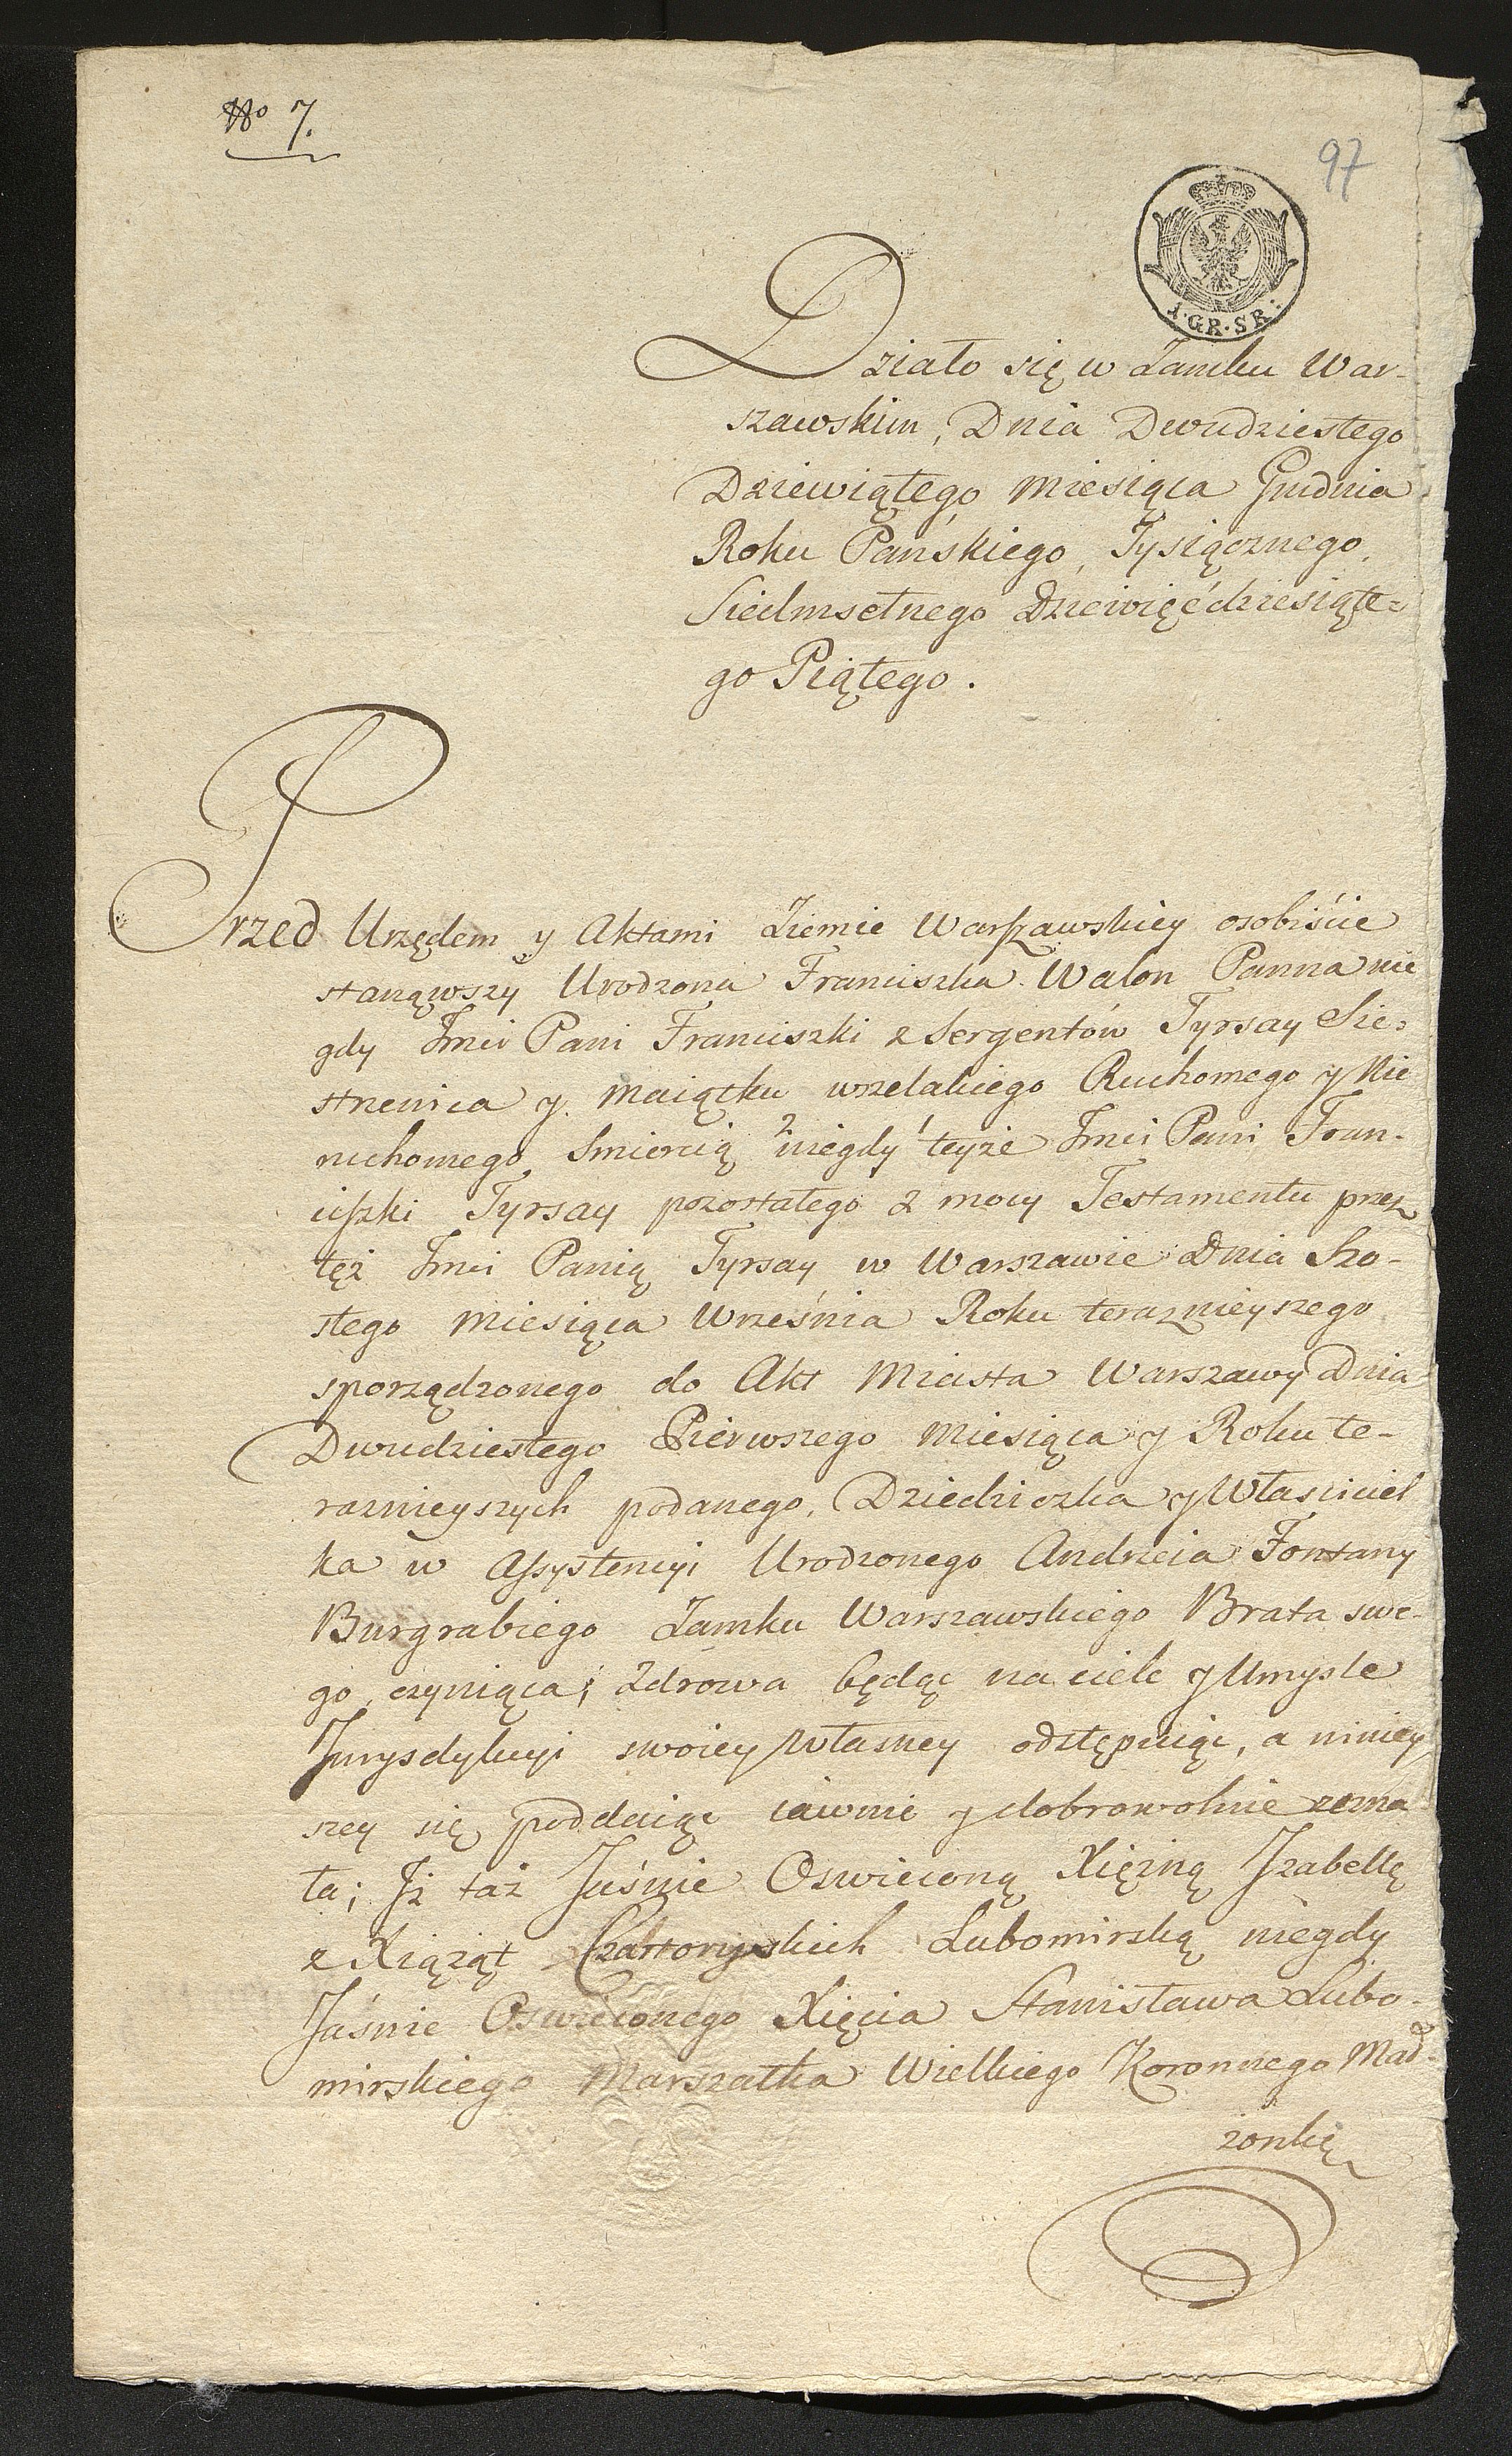 No 7.
97
1·GR·SR:
Działo się w Zamku War-
szawskim, Dnia Dwudziestego
Dziewiątego Miesiąca Grudnia
Roku Pańskiego, Tysiącznego,
Siedmsetnego Dziewięćdziesiąte=
go Piątego.
Przed Urzędem y Aktami Ziemie Warszawskiey osobiście
stanąwszy Urodzona Franciszka Walon Panna nie
gdy Jmci Pani Franciszki z Sergentów Tyrsay Sie=
strzenica y Maiątku wszelakiego Ruchomego y Nie
ruchomego Smiercią 2 niegdy 1 teyże Jmci Pani Fran-
ciszki Tyrsay pozostałego z mocy Testamentu przez
też Jmci Panią Tyrsay w Warszawie Dnia Szo-
stego Miesiąca Września Roku teraznieyszego
sporządzonego do Akt Miasta Warszawy Dnia
Dwudziestego Pierwszego Miesiąca y Roku te-
raznieyszych podanego, Dziedziczka y Własciciel
ka w Assystencyi Urodzonego Andrzeia Fontany
Burgrabiego Zamku Warszawskiego Brata swe-
go, czyniąca; Zdrowa będąc na ciele y Umysle
Jurysdykcyi swoiey własney odstępuiąc, a niniey
szey się poddaiąc iawnie y dobrowolnie zezna
ła; Jż taż Jaśnie Oswieconą Xiężnę Jzabellę
z Xiążąt Czartoryskich Lubomirską niegdy
Jaśnie Oswieconego Xięcia Stanisława Lubo-
mirskiego Marszałka Wielkiego Koronnego Mał-
żonkę